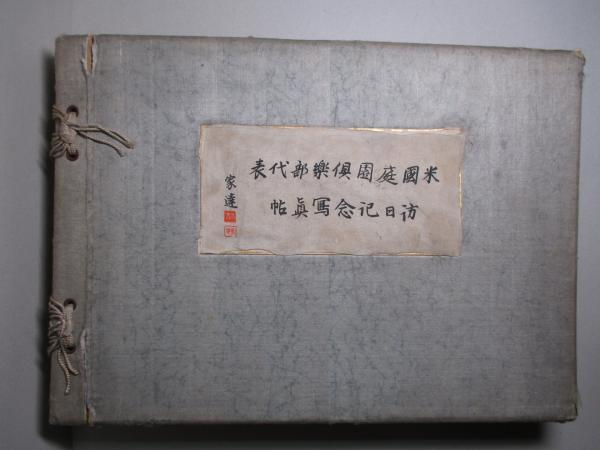 米國庭園俱樂部代表
訪日記念寫眞帖
家達